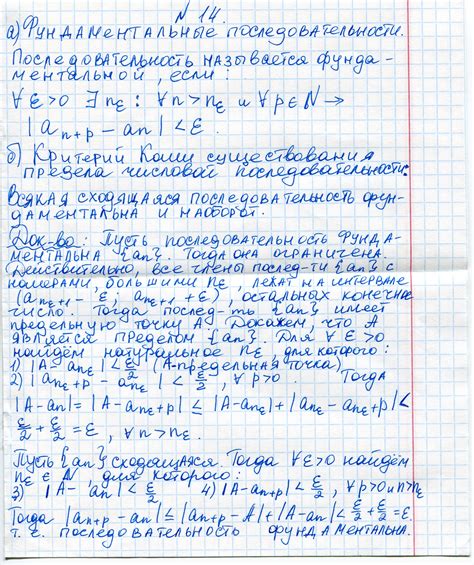 № 14.
а) Фундаментальные последовательности.
Последовательность называется фунда-
ментальной, если:
∀ε>0 ∃ n_ε : ∀n>n_ε и ∀p∈N →
|a_{n+p} − a_n| < ε.
б) Критерий Коши существования
предела числовой последовательности:
Всякая сходящаяся последовательность фун-
даментальна и наоборот.
Док-во: Пусть последовательность фунда-
ментальна {a_n}. Тогда она ограничена.
Действительно, все члены послед-ти {a_n} с
номерами, большими n_ε, лежат на интервале
(a_{n_ε+1} − ε, a_{n_ε+1} + ε), остальных конечное
число. Тогда послед-ть {a_n} имеет
предельную точку A. Докажем, что A
является пределом {a_n}. Для ∀ε>0
найдём натуральное n_ε, для которого:
1) |A − a_{n_ε}| < ε/2 (A-предельная точка)
2) |a_{n_ε+p} − a_{n_ε}| < ε/2, ∀p>0. Тогда
|A−a_n| = |A − a_{n_ε+p}| ≤ |A−a_{n_ε}| + |a_{n_ε} − a_{n_ε+p}| <
ε/2 + ε/2 = ε, ∀n>n_ε
Пусть {a_n} сходящаяся. Тогда ∀ε>0 найдём
n_ε ∈ N, для которого:
3) |A − a_n| < ε/2 4) |A−a_{n+p}| < ε/2, ∀p>0 и n>n_ε
Тогда |a_{n+p} − a_n| ≤ |a_{n+p} − A| + |A−a_n| < ε/2 + ε/2 = ε.
т. е. последовательность фундаментальна.